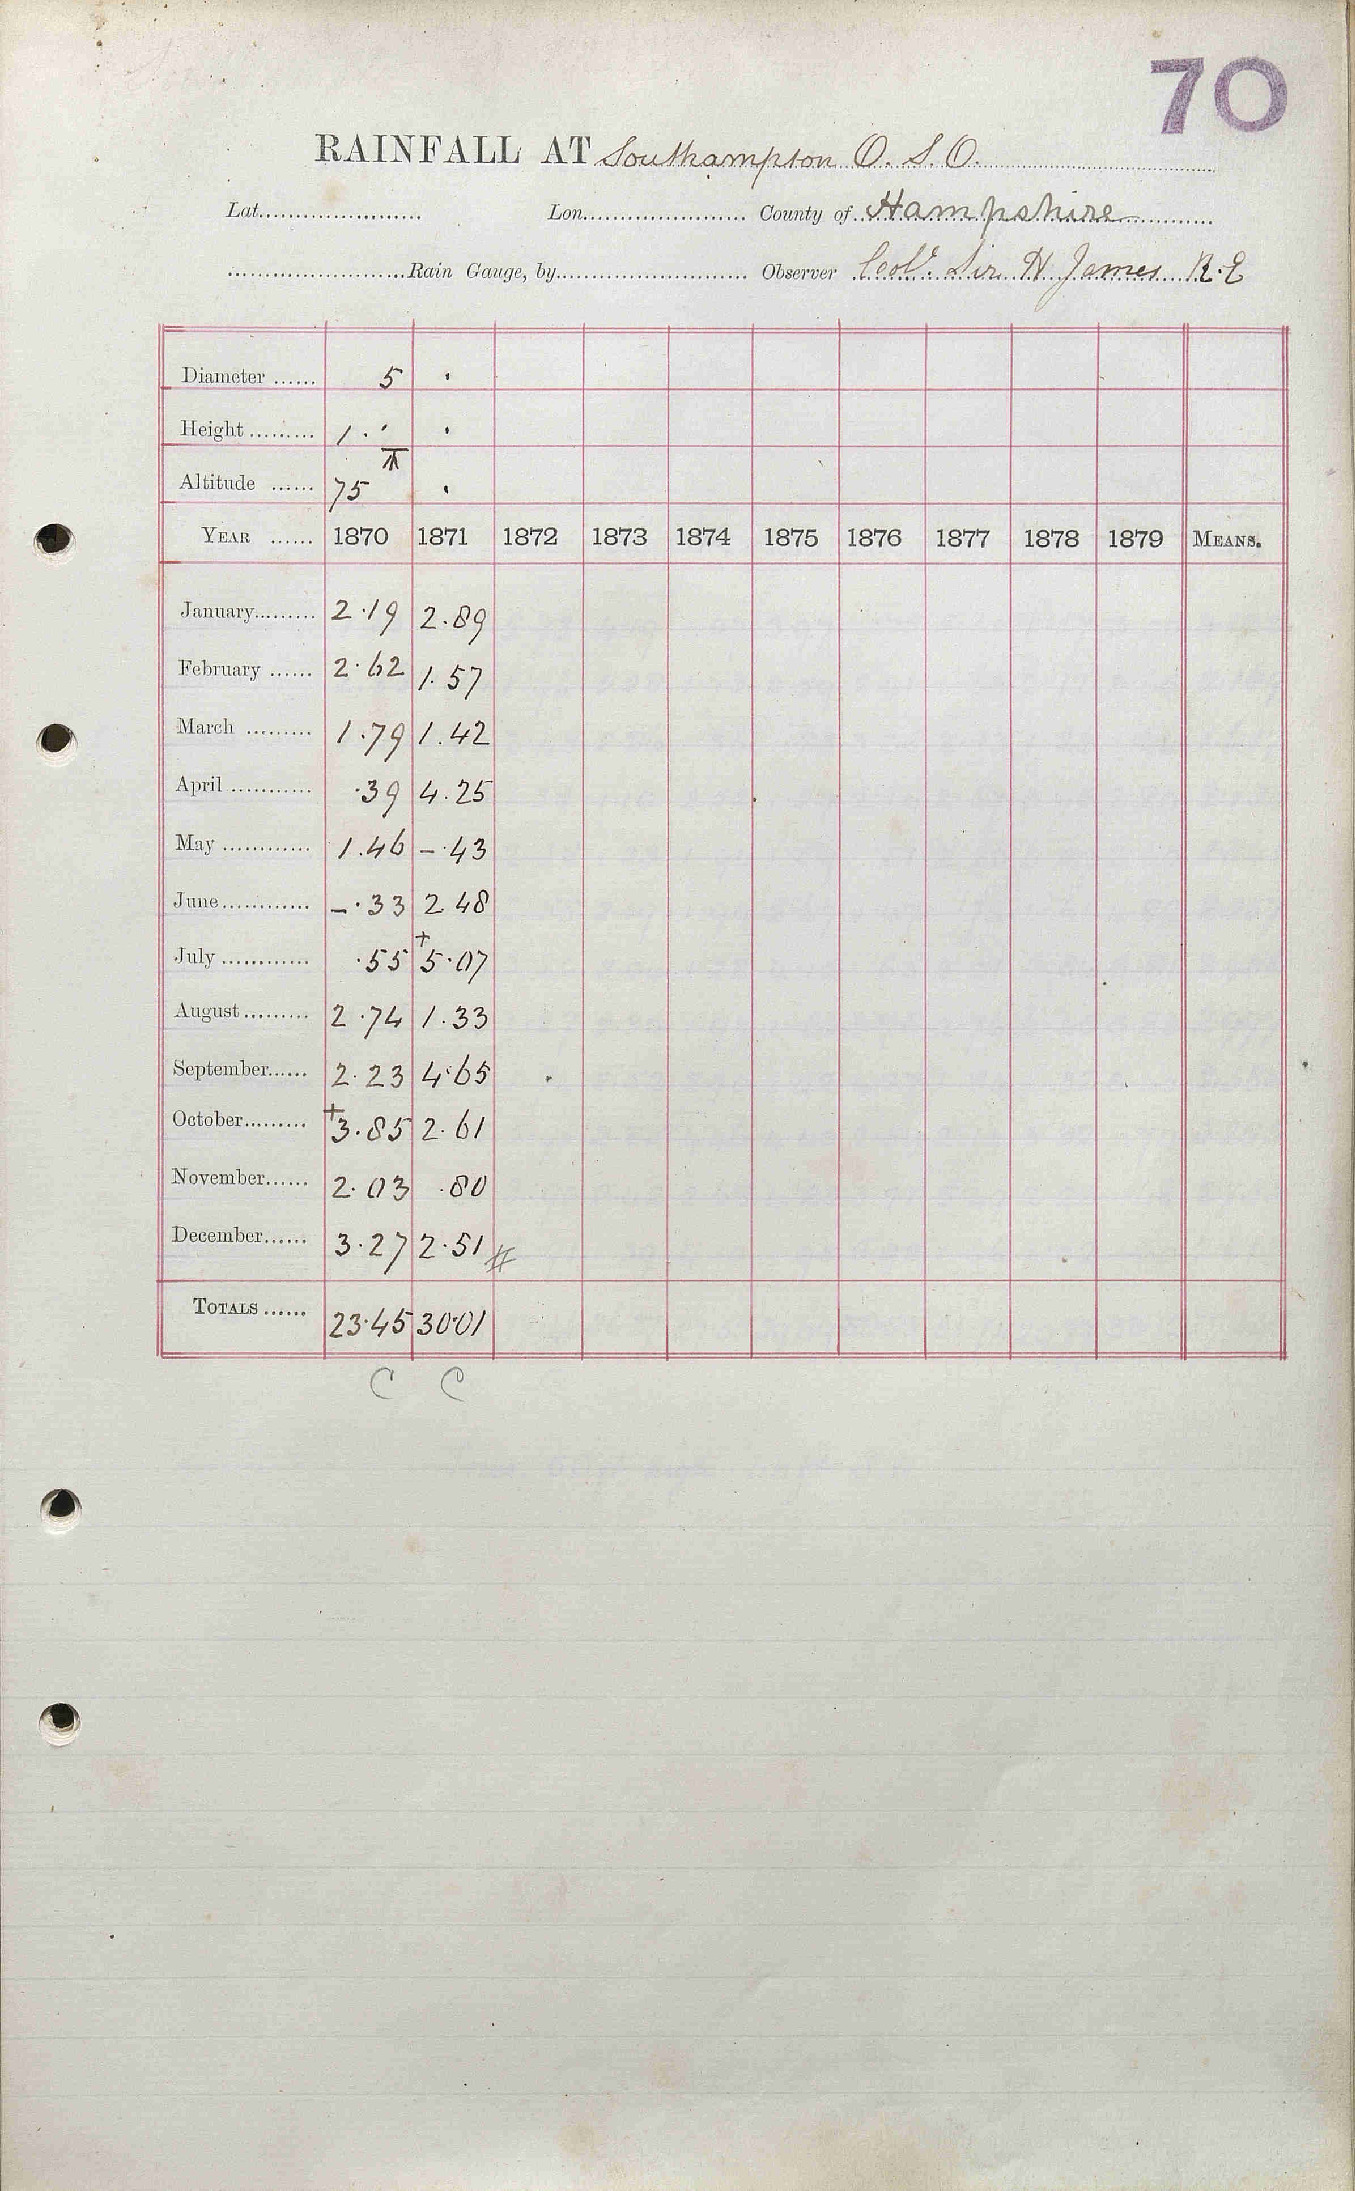 70
RAINFALL AT Southampton O. S. O.
Lat. Lon. County of Hampshire
Rain Gauge, by Observer Col. Sir H. James R.E
Diameter 5 .
Height 1. ' .
Altitude 75 .
YEAR 1870 1871 1872 1873 1874 1875 1876 1877 1878 1879 MEANS.
January 2.19 2.89
February 2.62 1.57
March 1.79 1.42
April .39 4.25
May 1.46 -.43
June -.33 2 48
July .55 +5.07
August 2.74 1.33
September 2.23 4.65
October +3.85 2.61
November 2.03 .80
December 3.27 2.51 #
TOTALS 23.45 30.01
C C